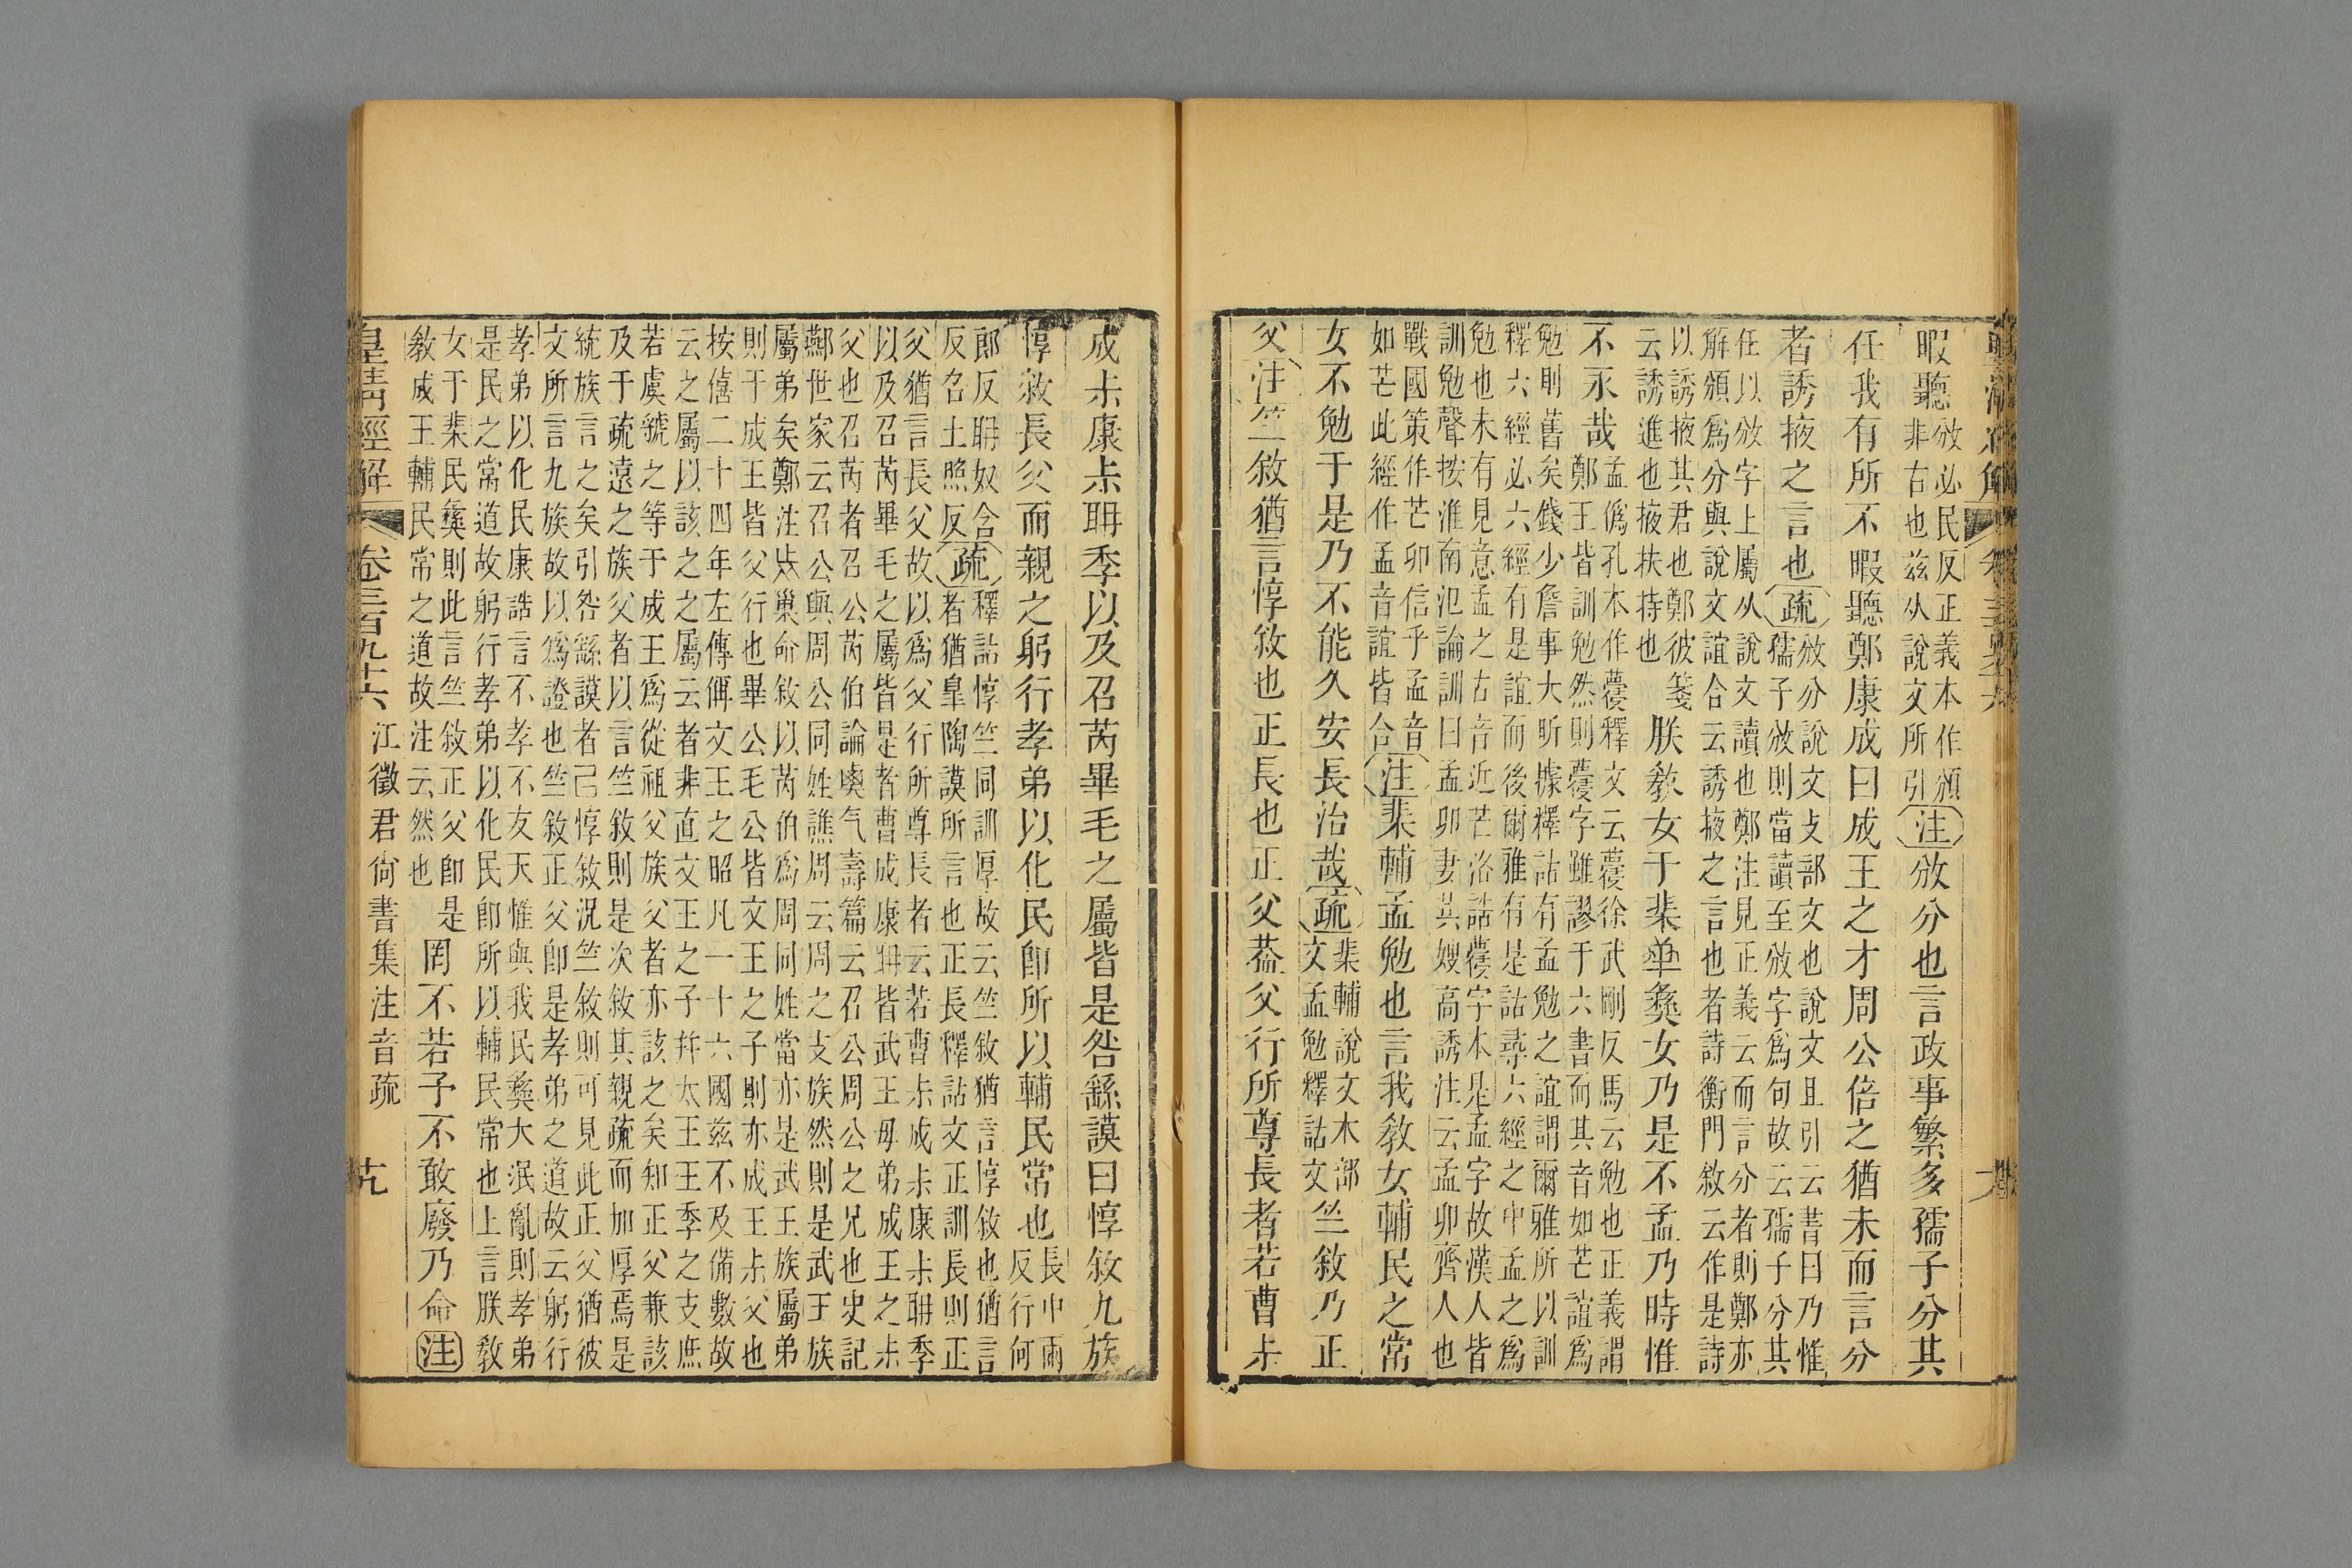 暇聽
攽必民反正義本作頒
非古也兹从說文所引
注攽分也言政事繁多孺子分其
任我有所不暇聽鄭康成曰成王之才周公倍之猶未而言分
者誘掖之言也疏
攽分說文攴部文也說文且引云書曰乃惟
孺子攽則當讀至攽字爲句故云孺子分其
任以攽字上屬从說文讀也鄭注見正義云而言分者則鄭亦
解頒爲分與說文誼合云誘掖之言也者詩衡門敘云作是詩
以誘掖其君也鄭彼箋
云誘進也掖扶持也
朕敎女于棐彝女乃是不孟乃時惟
不永哉
孟僞孔本作𧄼釋文云𧄼徐武剛反馬云勉也正義謂
鄭王皆訓勉然則𧄼字雖謬于六書而其音如芒誼爲
勉則舊矣錢少詹事大昕據釋詁有孟勉之誼謂爾雅所以訓
釋六經必六經有是誼而後爾雅有是詁尋六經之中孟之爲
勉也未有見意孟之古音近芒洛誥𧄼字本是孟字故漢人皆
訓勉聲按淮南氾論訓曰孟卯妻其嫂高誘注云孟卯齊人也
戰國策作芒卯信乎孟音
如芒此經作孟音誼皆合
注棐輔孟勉也言我敎女輔民之常
女不勉于是乃不能久安長治哉疏
棐輔說文木部
文孟勉釋詁文
竺敘乃正
父注竺敘猶言惇敘也正長也正父葢父行所尊長者若曹尗
成尗康尗聃季以及召芮畢毛之屬皆是咎繇謨曰惇敘九族
惇敘長父而親之躬行孝弟以化民卽所以輔民常也
長中兩
反行何
郎反聃奴含
反召土照反
疏
釋詁惇竺同訓厚故云竺敘猶言惇敘也猶言
者猶皐陶謨所言也正長釋詁文正訓長則正
父猶言長父故以爲父行所尊長者云若曹尗成尗康尗聃季
以及召芮畢毛之屬皆是者曹成康聃皆武王毋弟成王之尗
父也召芮者召公芮伯論衡气壽篇云召公周公之兄也史記
燕世家云召公與周公同姓譙周云周之支族然則是武王族
屬弟矣鄭注旅巢命敘以芮伯爲周同姓當亦是武王族屬弟
則于成王皆父行也畢公毛公皆文王之子則亦成王尗父也
按僖二十四年左傳偁文王之昭凡一十六國兹不及備數故
云之屬以該之之屬云者非直文王之子幷太王王季之支庶
若虞虢之等于成王爲從祖父族父者亦該之矣知正父兼該
及于疏遠之族父者以言竺敘則是次敘其親疏而加厚焉是
統族言之矣引咎繇謨者己惇敘況竺敘則可見此正父猶彼
文所言九族故以爲證也竺敘正父卽是孝弟之道故云躬行
孝弟以化民康誥言不孝不友天惟與我民彝大泯亂則孝弟
是民之常道故躬行孝弟以化民卽所以輔民常也上言朕敎
女于棐民彝則此言竺敘正父卽是
敎成王輔民常之道故注云然也
罔不若予不敢廢乃命注
皇清經解 卷三百九十六 江徵君尙書集注音疏